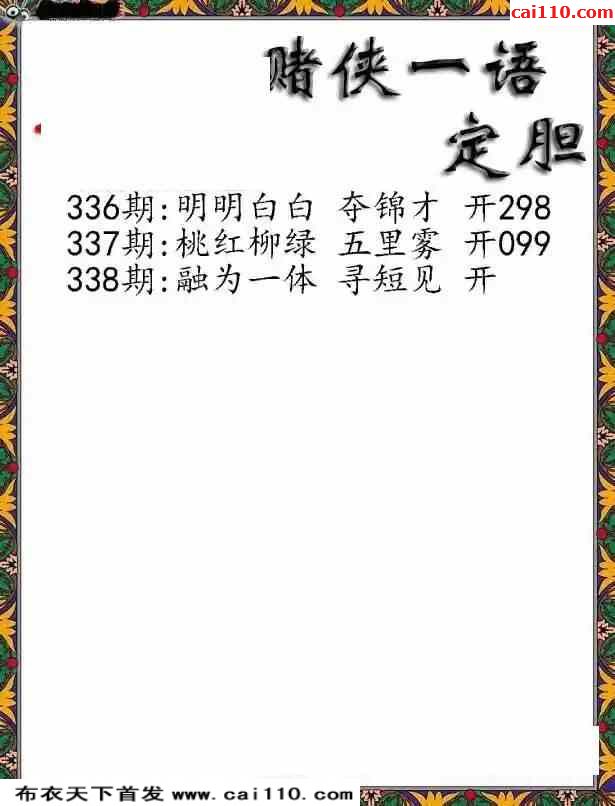 cai110.com
赌侠一语
定胆
336期:明明白白 夺锦才 开298
337期:桃红柳绿 五里雾 开099
338期:融为一体 寻短见 开
布衣天下首发 www.cai110.com